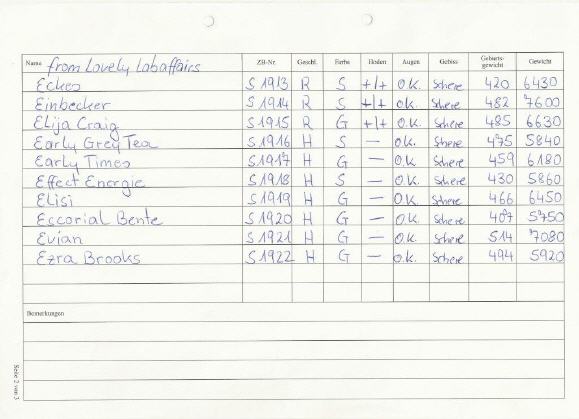 Name from Lovely Labaffairs ZB-Nr. Geschl. Farbe Hoden Augen Gebiss Geburts-gewicht Gewicht
Eckes S1913 R S +/+ O.K. Schere 420 6430
Einbecker S1914 R S +/+ O.K. Schere 482 7600
Elija Craig S1915 R G +/+ O.K. Schere 485 6630
Early Grey Tea S1916 H S — O.K. Schere 475 5840
Early Times S1917 H G — O.K. Schere 459 6180
Effect Energie S1918 H S — O.K. Schere 430 5860
Elisi S1919 H G — O.K. Schere 466 6450
Escorial Bente S1920 H G — O.K. Schere 407 5750
Evian S1921 H G — O.K. Schere 514 7080
Ezra Brooks S1922 H G — O.K. Schere 494 5920
Bemerkungen
Seite 2 von 3